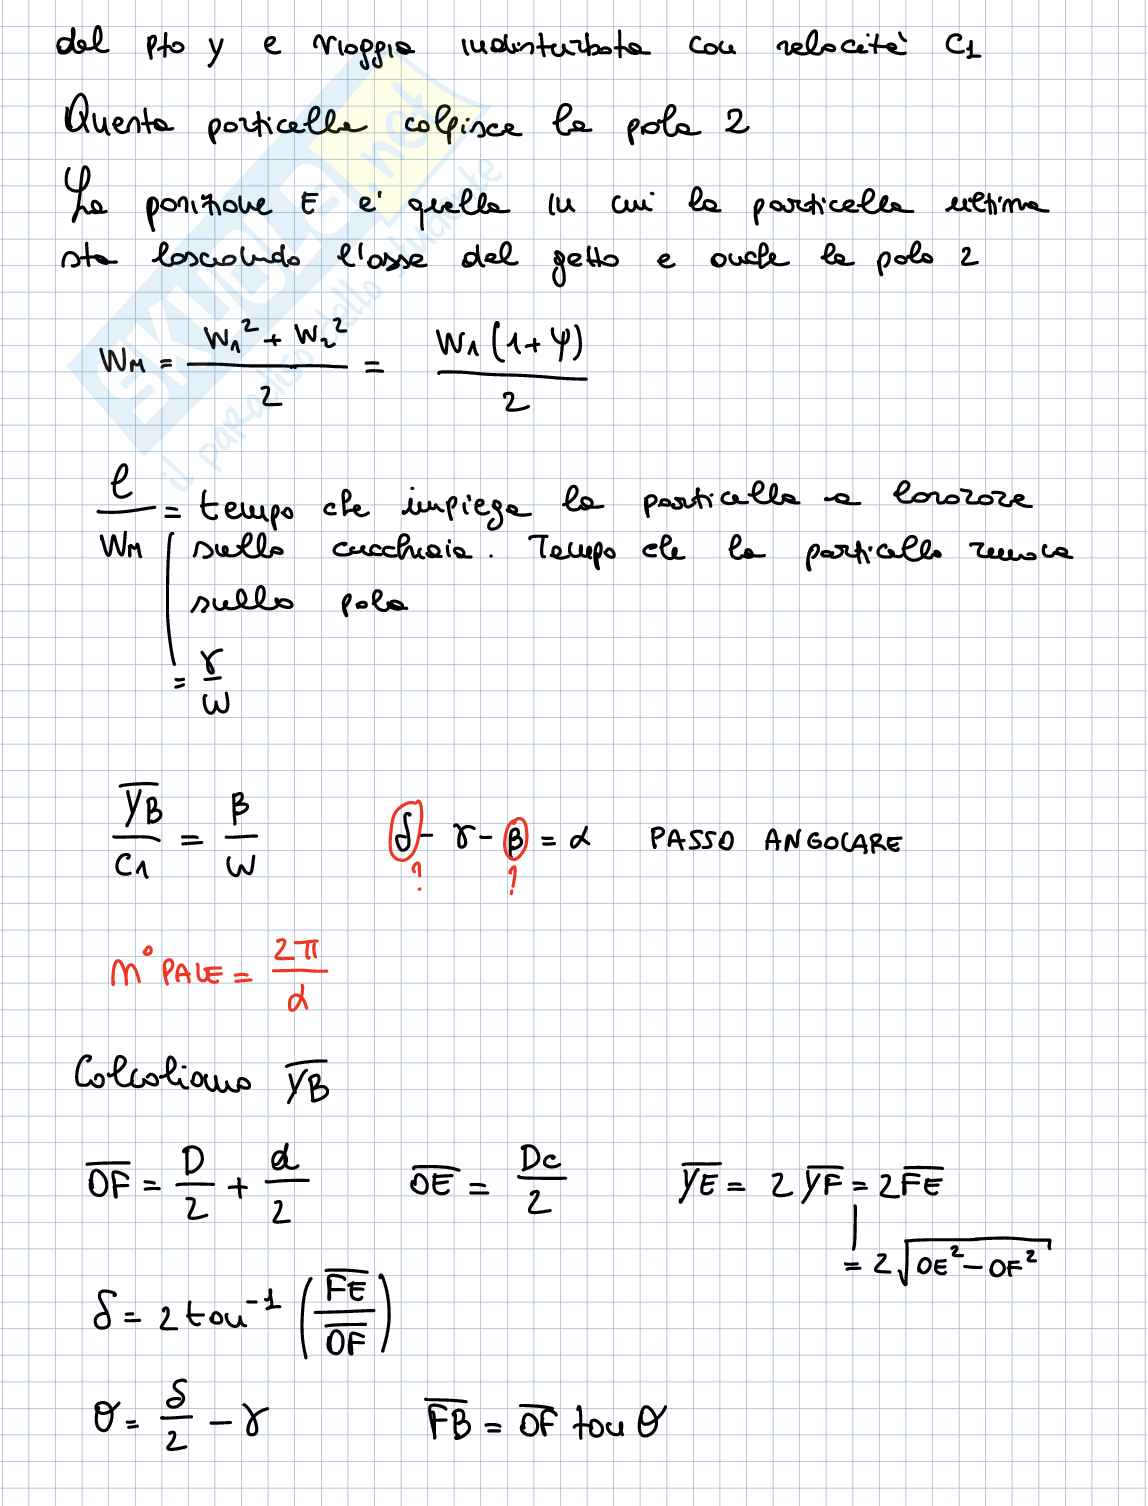 del pto y e viaggia indisturbata con velocità C1
Questa particella colpisce la pala 2
La posizione E e' quella in cui la particella ultima
sta lasciando l'asse del getto e anche la pala 2
WM = (W1² + W2²) / 2 = W1 (1 + ψ) / 2
l / WM = tempo che impiega la particella a lavorare
sulla cucchiaia. Tempo che la particella rimane
sulla pala
= γ / ω
YB / C1 = β / ω   δ - γ - β = α   PASSO ANGOLARE
? ?
n° PALE = 2π / α
Calcoliamo YB
OF = D/2 + d/2   OE = Dc/2   YE = 2 YF = 2 FE
= 2 √(OE² - OF²)
δ = 2 tan⁻¹ (FE / OF)
θ = δ/2 - γ   FB = OF tan θ
SKUOLA.net
il paradiso dello studente